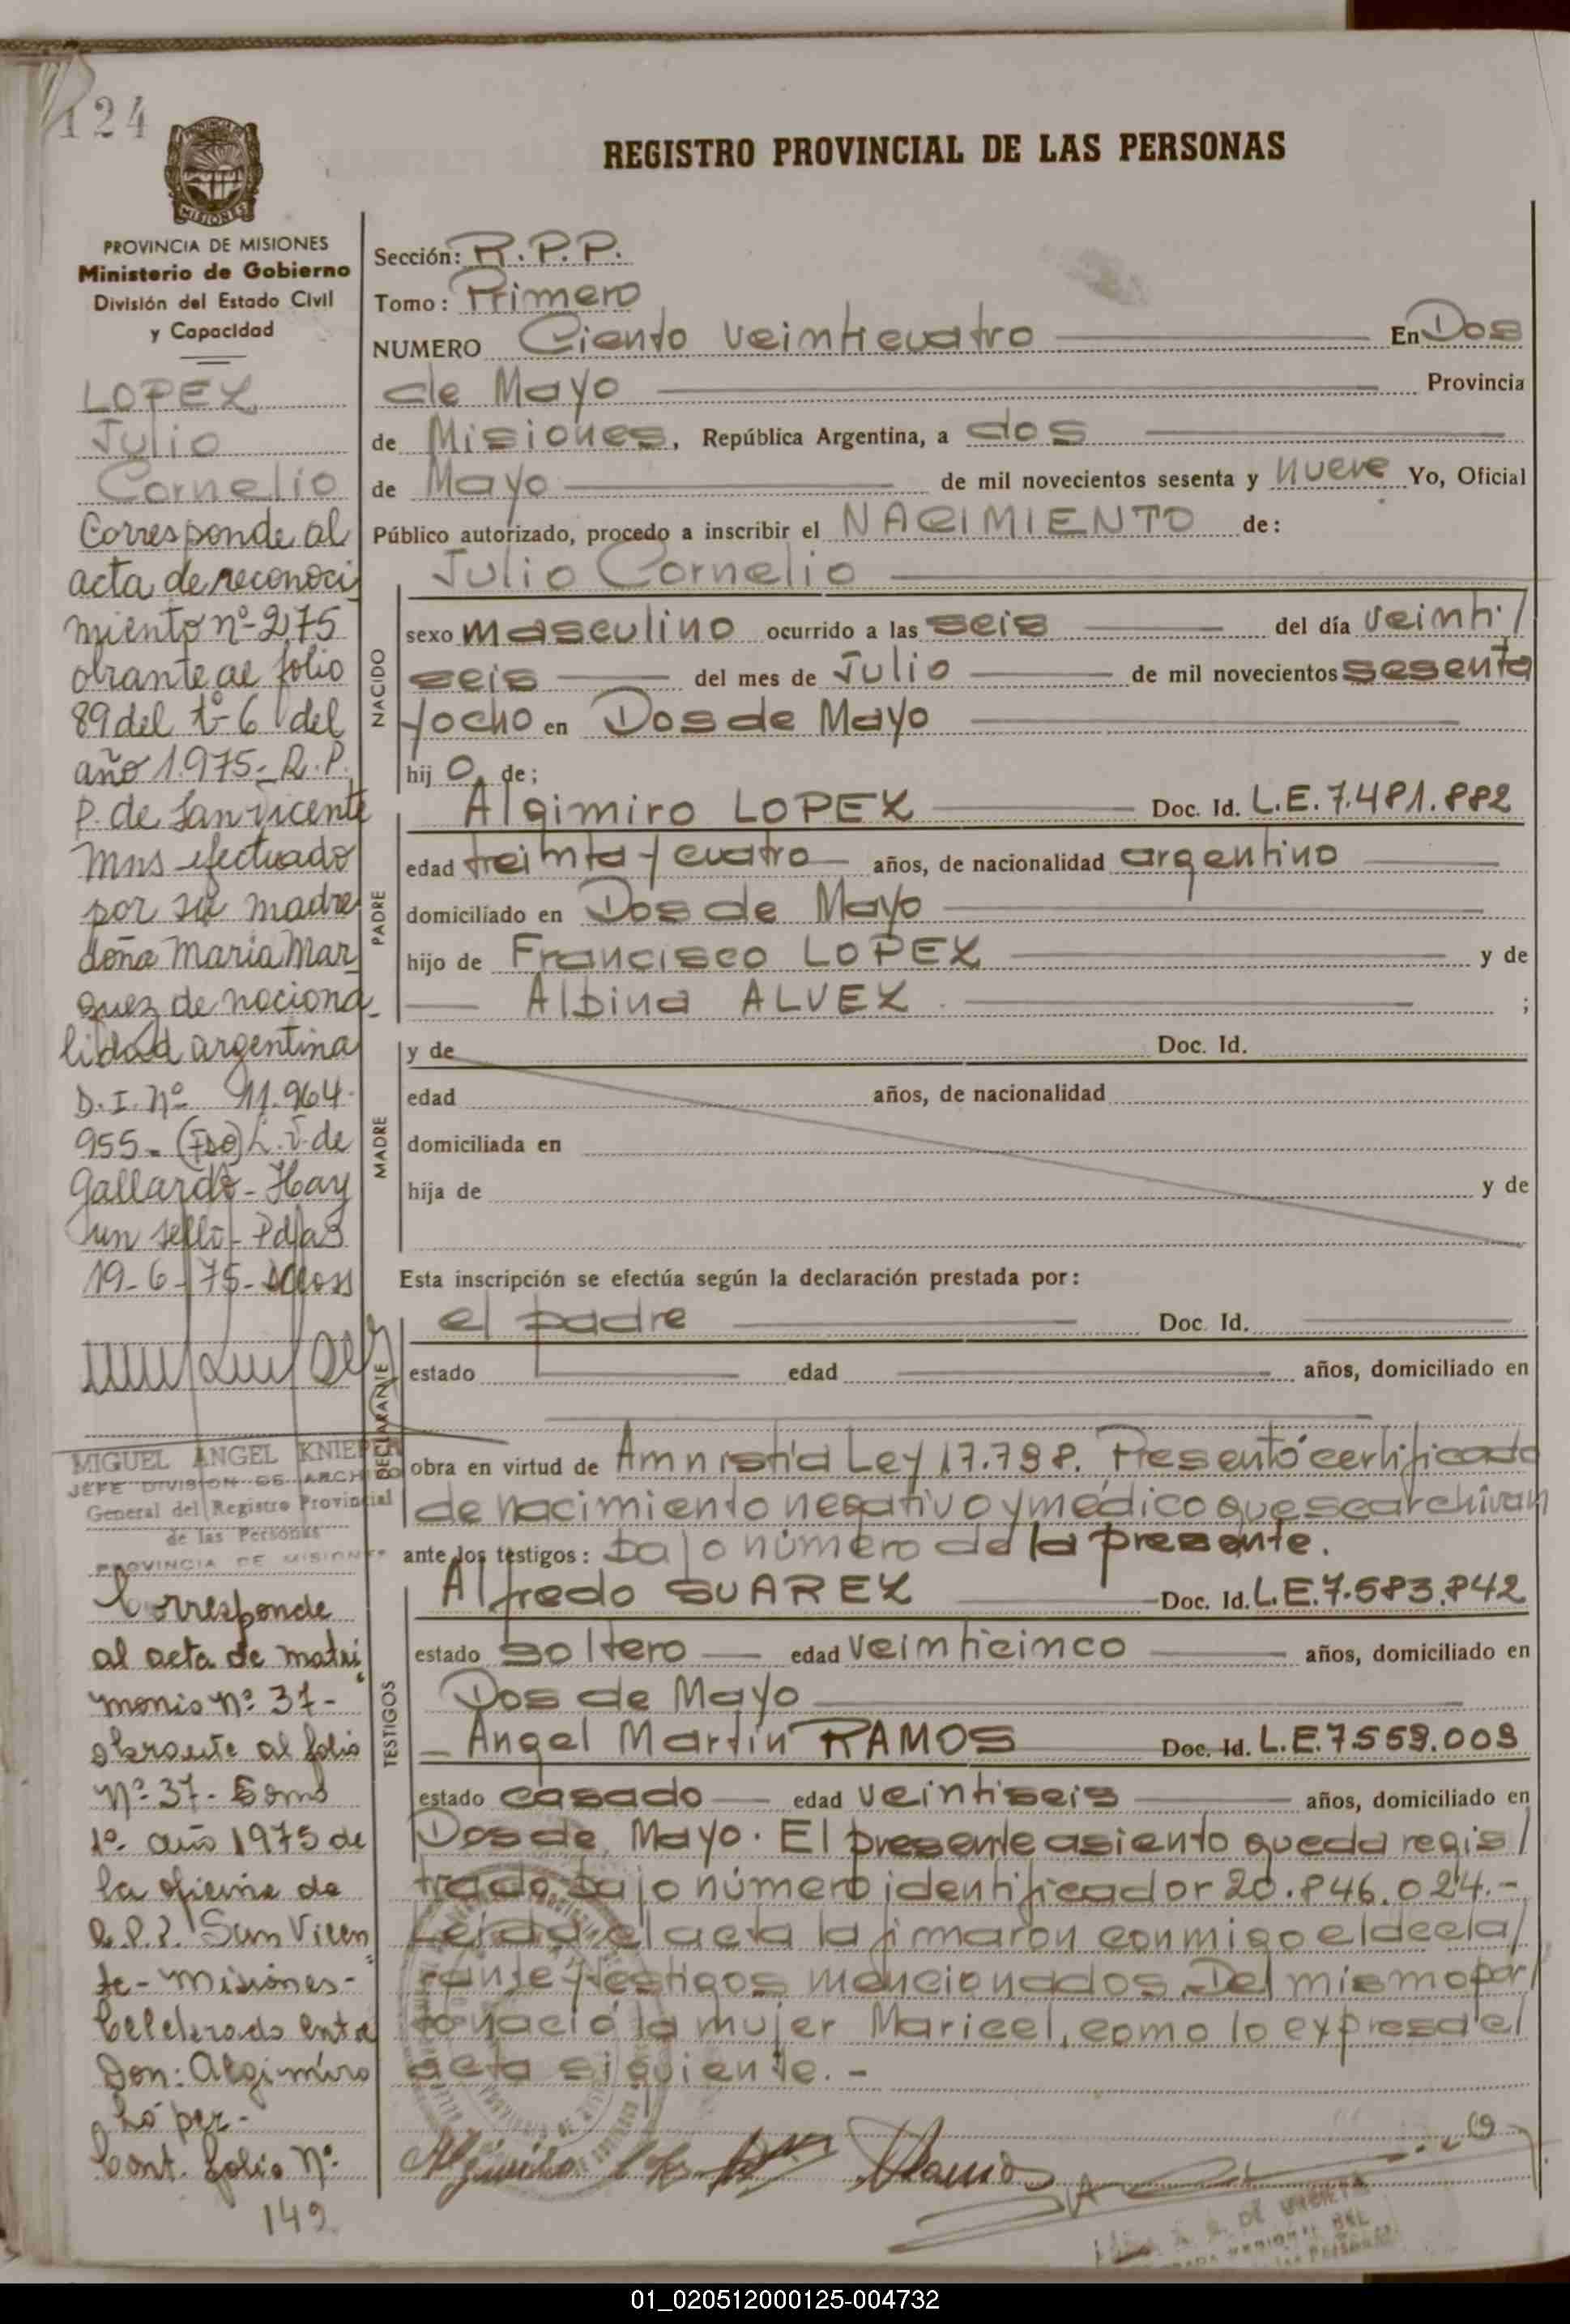 124
MISIONES
REGISTRO PROVINCIAL DE LAS PERSONAS
PROVINCIA DE MISIONES
Ministerio de Gobierno
División del Estado Civil
y Capacidad
LOPEZ
Julio
Cornelio
Corresponde al
acta de reconoci
miento nº 275
obrante al folio
89 del tº 6 del
año 1.975 - R.P.
P. de San Vicente
Mns efectuado
por su madre
doña Maria Mar
quez de naciona
lidad argentina
D.I. Nº 11.964.
955 - (Fdo) L. V. de
Gallardo - Hay
un sello - Pdas
19-6-75-
MIGUEL ANGEL KNIEPER
JEFE DIVISION DE ARCHIVO
General del Registro Provincial
de las Personas
PROVINCIA DE MISIONES
Corresponde
al acta de matri
monio Nº 37-
obrante al folio
Nº 37- Tomo
1º año 1975 de
la oficina de
R.P.P. San Vicen
te - Misiones -
Celebrado entre
Don: Algimiro
López -
Cont. folio Nº
149
Sección: R.P.P.
Tomo: Primero
NUMERO Ciento veinticuatro En Dos
de Mayo Provincia
de Misiones, República Argentina, a dos
de Mayo de mil novecientos sesenta y nueve Yo, Oficial
Público autorizado, procedo a inscribir el NACIMIENTO de:
Julio Cornelio
NACIDO
sexo masculino ocurrido a las seis del día veinti/
seis del mes de Julio de mil novecientos sesenta
yocho en Dos de Mayo
hij o de;
PADRE
Algimiro LOPEZ Doc. Id. L.E.7.481.882
edad treinta y cuatro años, de nacionalidad argentino
domiciliado en Dos de Mayo
hijo de Francisco LOPEZ y de
Albina ALVEZ ;
MADRE
y de Doc. Id.
edad años, de nacionalidad
domiciliada en
hija de y de
Esta inscripción se efectúa según la declaración prestada por:
DECLARANTE
el padre Doc. Id.
estado edad años, domiciliado en
obra en virtud de Amnistía Ley 17.798. Presentó certificado
de nacimiento negativo y médico que se archivan
ante los testigos: bajo número de la presente.
TESTIGOS
Alfredo SUAREZ Doc. Id. L.E.7.583.842
estado soltero edad veinticinco años, domiciliado en
Dos de Mayo
Angel Martín RAMOS Doc. Id. L.E.7.559.009
estado casado edad veintiseis años, domiciliado en
Dos de Mayo. El presente asiento queda regis/
trado bajo número identificador 20.846.024.-
Leída el acta la firmaron conmigo el decla/
rante y testigos mencionados. Del mismo par/
to nació la mujer Maricel, como lo expresa el
acta siguiente.-
01_020512000125-004732